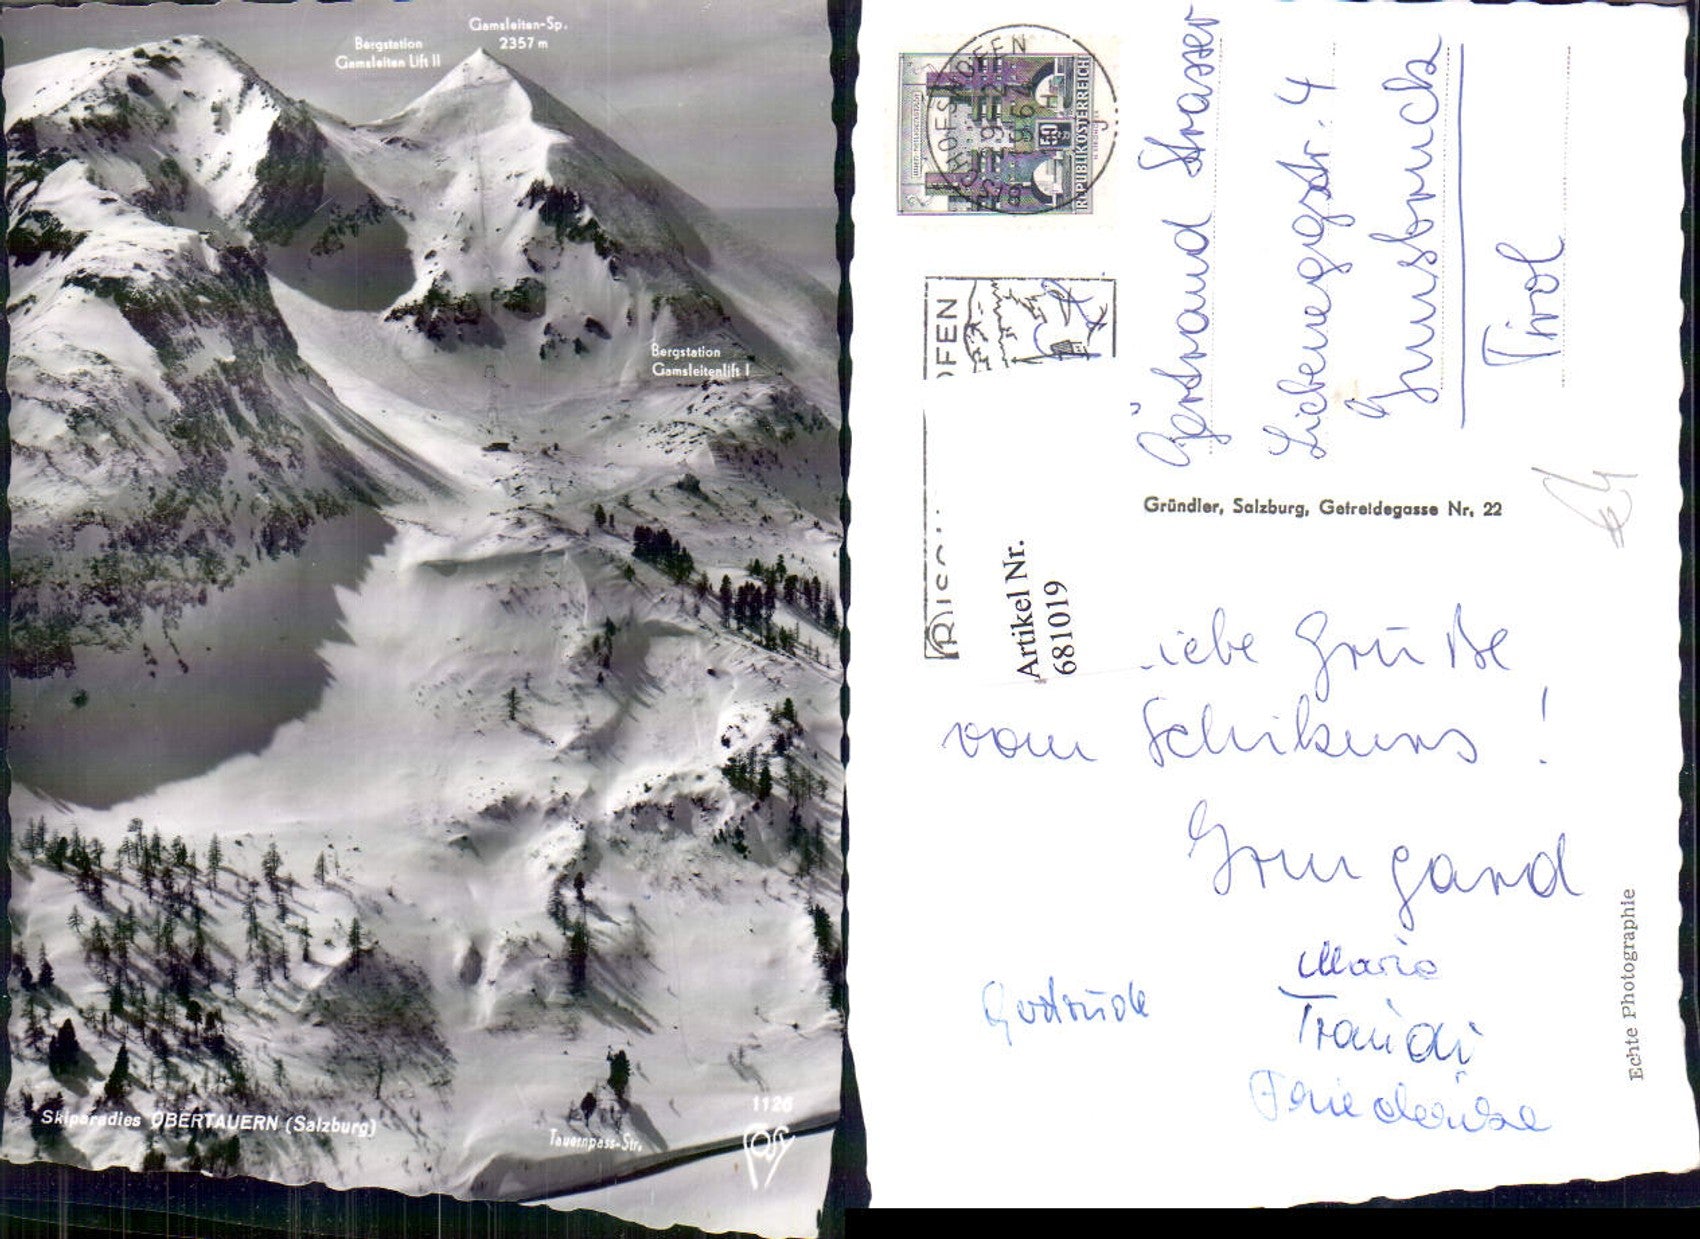 Gamsleiten-Sp.
2357 m
Bergstation
Gamsleiten Lift II
Bergstation
Gamsleitenlift I
Skiparadies OBERTAUERN (Salzburg)
Tauernpass-Str.
1126
COSY
BISCHOFSHOFEN
50
REPUBLIK ÖSTERREICH
OFEN
Artikel Nr.
681019
Strasser
Liebeneggstr. 4
Innsbruck
Tirol
Gründler, Salzburg, Getreidegasse Nr. 22
iebe Grüße
vom Schikurs!
Irmgard
Maria
Gertrude
Traudi
Friederike
Echte Photographie